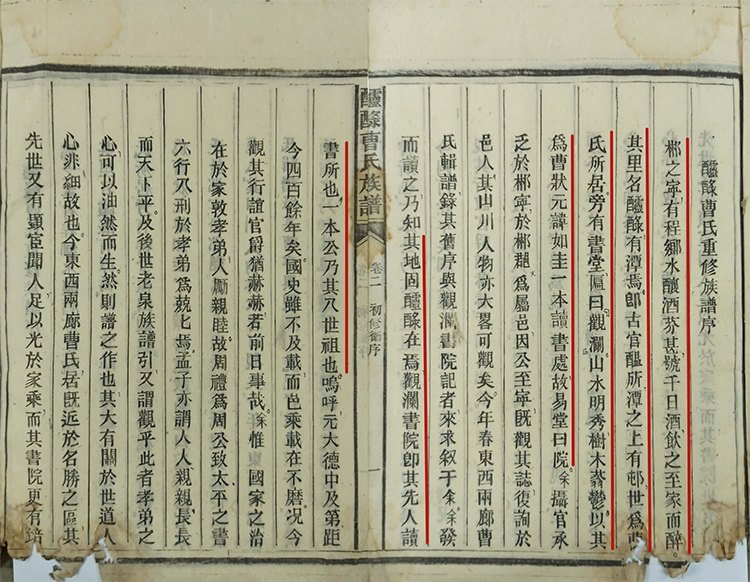 醽醁曹氏重修族譜序
郴之寧有程鄉水釀酒芬甚號千日酒飲之至家而醉
其里名醽醁有潭焉卽古官醞所潭之上有邨世爲曹
氏所居旁有書堂匾曰觀瀾山水明秀樹木蓊鬱以其
爲曹狀元諱如圭一本讀書處故易堂曰院余攝官承
乏於郴寧於郴郡爲屬邑因公至寧既觀其誌復詢於
邑人其山川人物亦大畧可觀矣今年春東西兩廊曹
氏輯譜錄其舊序與觀瀾書院記者來求叙于余余發
而讀之乃知其地固醽醁在焉觀瀾書院卽其先人讀
醽醁曹氏族譜
卷二
初修舊序
一
書所也一本公乃其八世祖也嗚呼元大德中及第距
今四百餘年矣國史雖不及載而邑乘載在不磨况今
觀其行誼官爵猶赫赫若前日事哉余惟國家之治
在於家敦孝弟人勵親睦故周禮爲周公致太平之書
六行乃刑於孝弟爲兢匕焉孟子亦謂人人親親長長
而天下平及後世老泉族譜引又謂觀乎此者孝弟之
心可以油然而生然則譜之作也其大有關於世道人
心非細故也今東西兩廊曹氏居既近於名勝之區其
先世又有顯宦聞人足以光於家乘而其書院更有